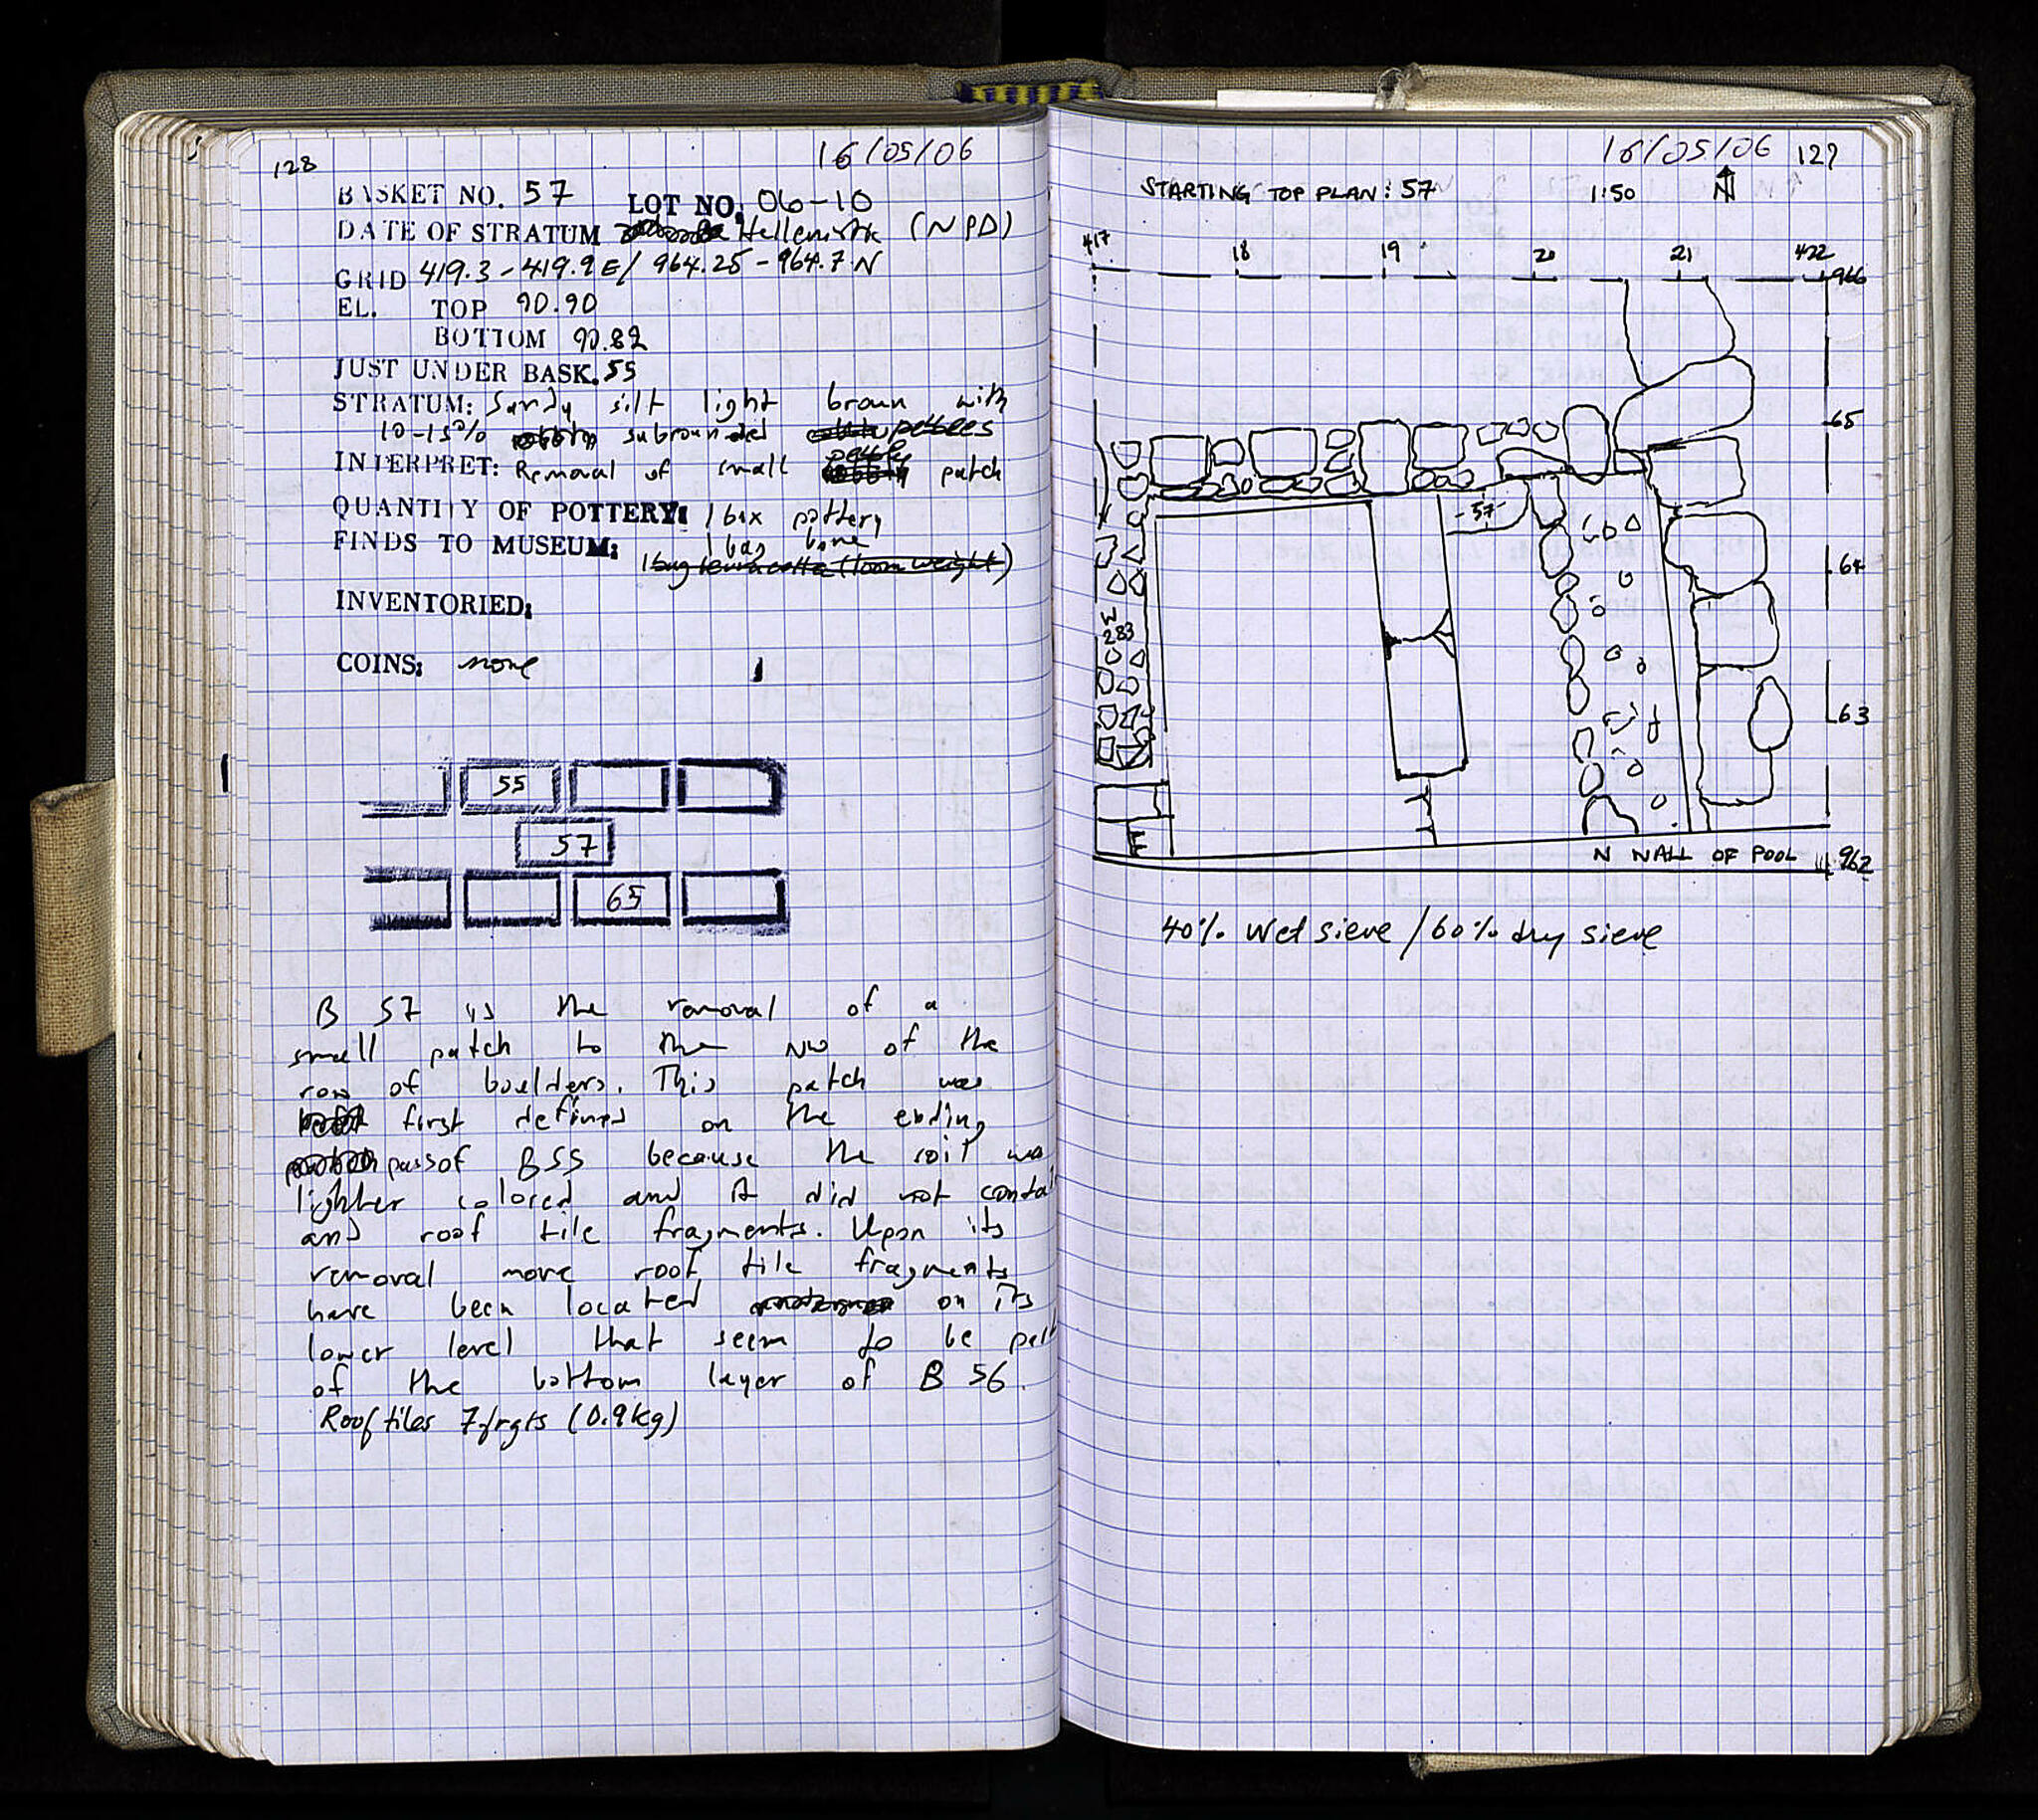 128
16/05/06
BASKET NO. 57 LOT NO. 06-10
DATE OF STRATUM Hellenistic (NPD)
GRID 419.3-419.9 E/ 964.25-964.7 N
EL. TOP 90.90
BOTTOM 90.82
JUST UNDER BASK. 55
STRATUM: Sandy silt light brown with
10-15% subrounded pebbles
INTERPRET: Removal of small pebbly patch
QUANTITY OF POTTERY: 1 box pottery
FINDS TO MUSEUM: 1 bag bone
1 bag terracotta (loom weight)
INVENTORIED:
COINS: none
55
57
65
B 57 is the removal of a
small patch to the NW of the
row of boulders. This patch was
first defined on the ending
pass of B55 because the soil was
lighter colored and it did not contai
and roof tile fragments. Upon its
removal more roof tile fragments
have been located on its
lower level that seem to be part
of the bottom layer of B 56.
Roof tiles 7 frgts (0.9kg)
16/05/06 129
STARTING TOP PLAN: 57 1:50 N
417 18 19 20 21 422
966
65
-57-
64
W
283
63
N WALL OF POOL
962
40% wet sieve / 60% dry sieve